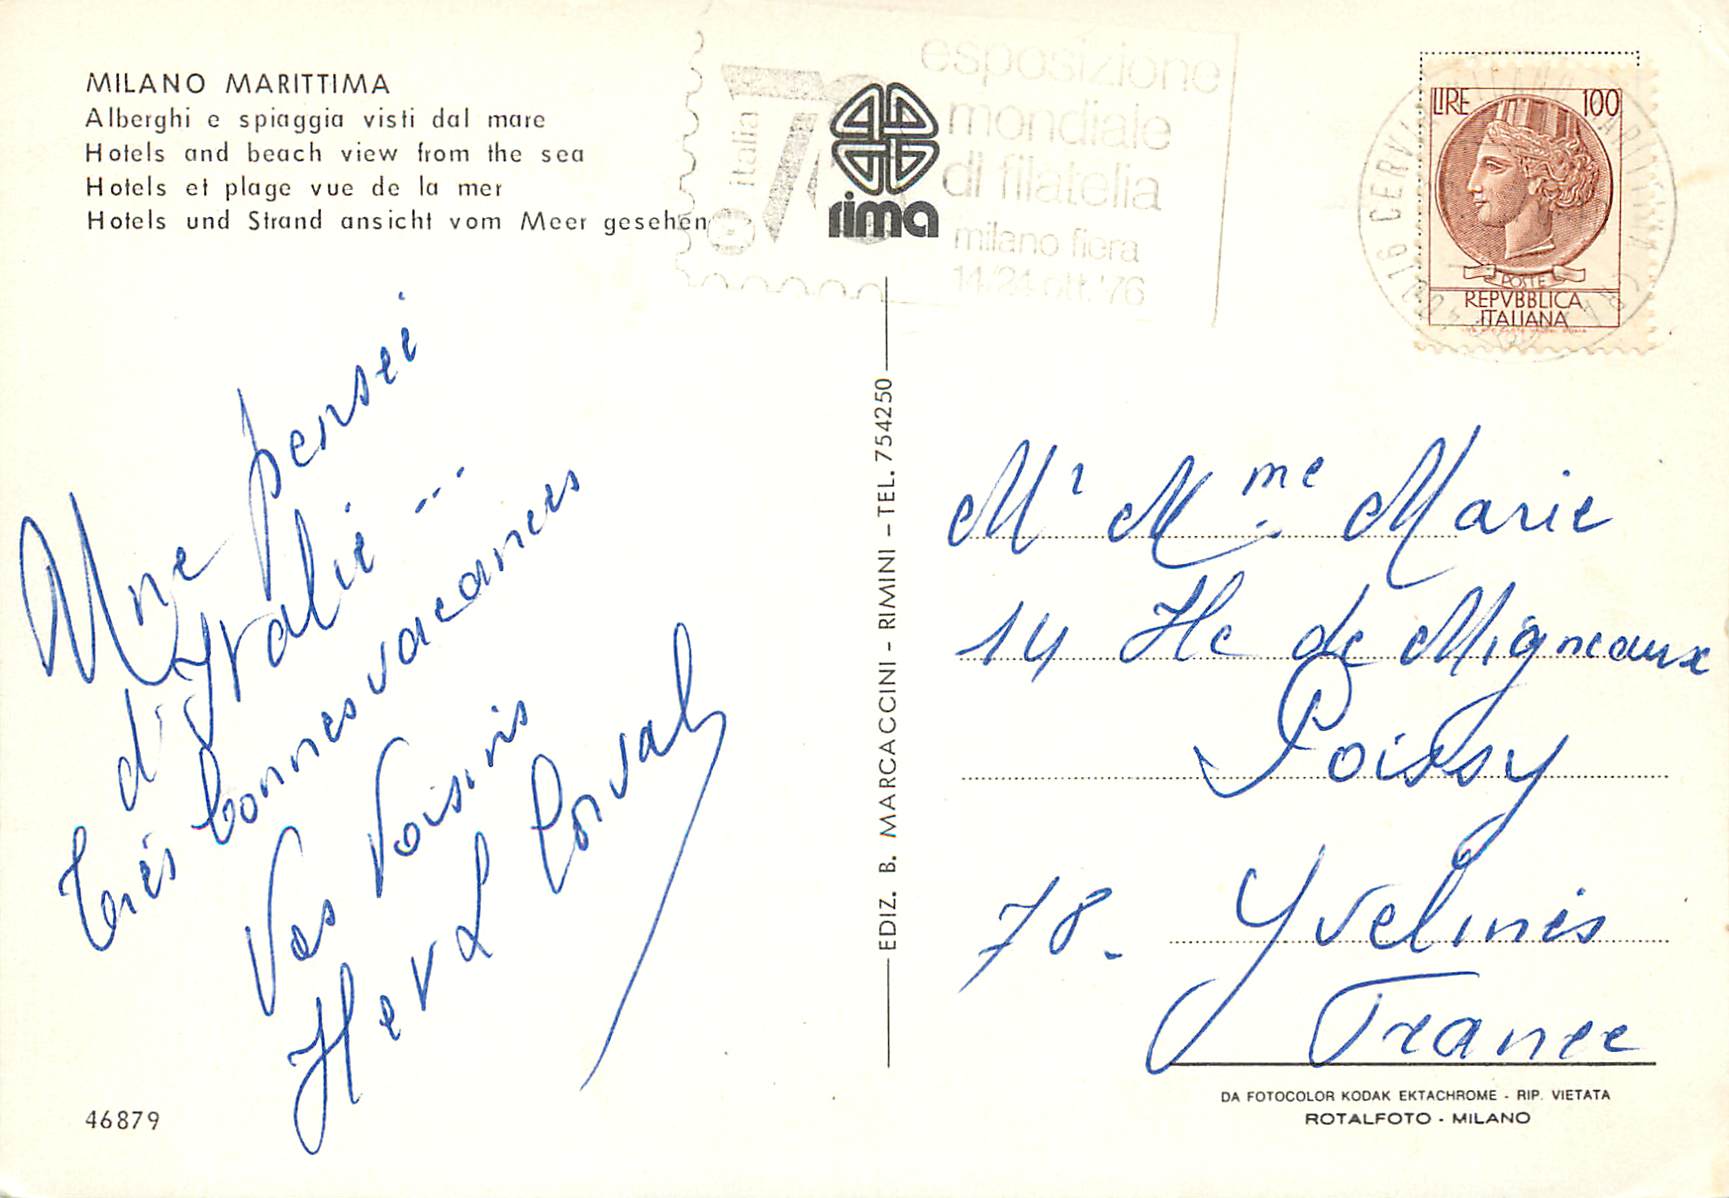 MILANO MARITTIMA
Alberghi e spiaggia visti dal mare
Hotels and beach view from the sea
Hotels et plage vue de la mer
Hotels und Strand ansicht vom Meer gesehen
italia 76
esposizione
mondiale
di filatelia
milano fiera
14/24 ott. '76
rima
LIRE 100
POSTE
REPVBBLICA
ITALIANA
16 CERVIA
Une pensée
d'Italie ...
très bonnes vacances
Vos Voisins
EDIZ. B. MARCACCINI - RIMINI - TEL. 754250
Mr Mme Marie
14 Ile de Migneaux
Poissy
78. Yvelines
France
46879
DA FOTOCOLOR KODAK EKTACHROME - RIP. VIETATA
ROTALFOTO - MILANO